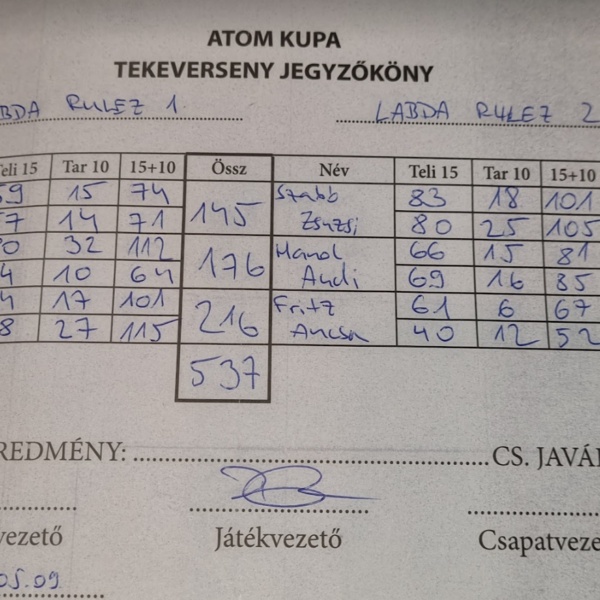 ATOM KUPA
TEKEVERSENY JEGYZŐKÖNY
BDA RULEZ 1. LABDA RULEZ 2
Teli 15 Tar 10 15+10 Össz Név Teli 15 Tar 10 15+10
59 15 74 145 Szabb 83 18 101
57 14 71 Zsuzsi 80 25 105
80 32 112 176 Mand 66 15 81
4 10 64 Andi 69 16 85
4 17 101 216 Fritz 61 6 67
8 27 115 Ancsa 40 12 52
537
REDMÉNY: CS. JAVÁ
vezető Játékvezető Csapatveze
05.09